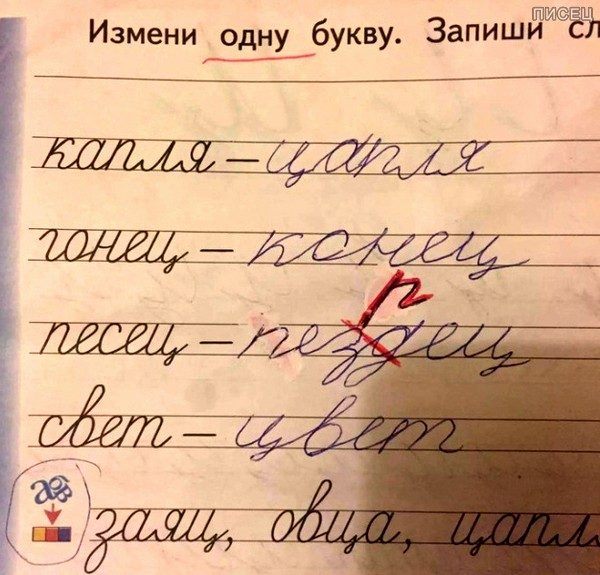 ПИСЕЦ
Измени одну букву. Запиши сл
капля – цапля
гонец – конец
р
песец – пездец
свет – цвет
заяц, овца, цапл